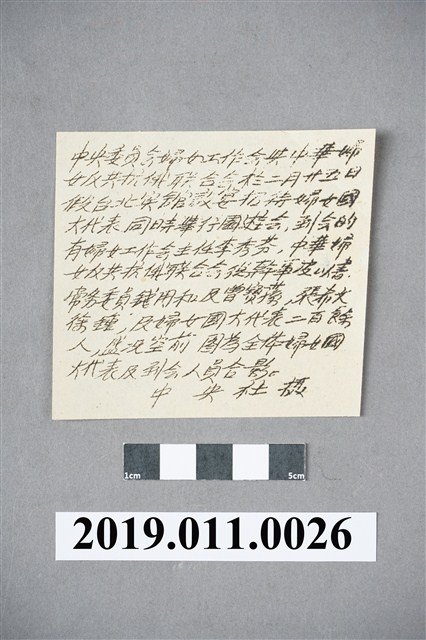 中央委員会婦女工作会與中華婦
女反共抗俄联合会於二月廿五日
假台北賓館設宴招待婦女國
大代表同時舉行園遊会,到会的
有婦女工作会主任李秀芬,中華婦
女反共抗俄联合会總幹事皮以書
常务委員錢用和及曾寶蓀,張希文
徐鍾,及婦女國大代表二百餘
人,盛況空前 图為全体婦女國
大代表及到会人員合影。
中央社攝
1cm 5cm
2019.011.0026